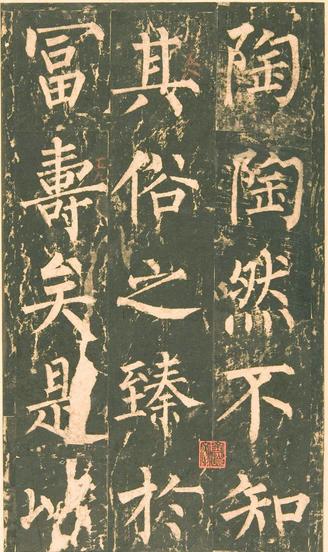 陶陶然不知
其俗之臻於
冨壽矣是